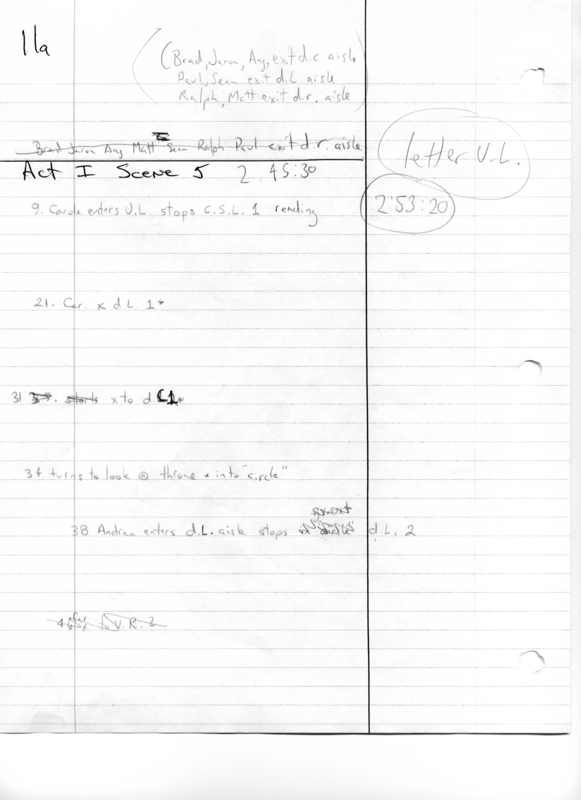 11a
(Brad, Jaron, Amy, exit d.c aisle
Paul, Sean exit d.L aisle
Ralph, Matt exit d.r. aisle
Brad Jaron Amy Matt Sean Ralph Paul exit d.r. aisle
letter U.L.
Act I Scene 5 2 45:30
2:53:20
9. Carole enters U.L stops C.S.L. 1 reading
21. Car. x d L 1
31 x to d L1
34 turns to look @ throne x into "circle"
38 Andrea enters d.L. aisle stops d.L. 2
to U.R. 2